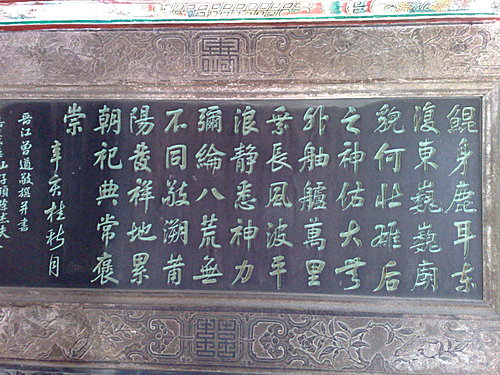 鯤身鹿耳東
復東巍巍廟
貌何壯雄后
之神佑大
外舳艫萬里
乘長風波平
浪静悉神力
彌綸八荒無
不同敬溯莆
陽發祥地累
朝祀典常褒
崇
辛亥桂秋月
晉江曾道敬撰并書